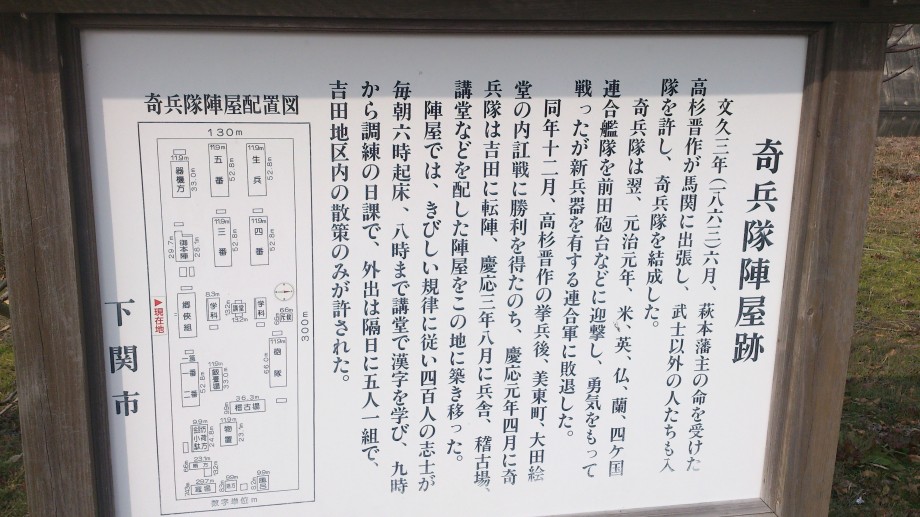 奇兵隊陣屋跡
文久三年(一八六三)六月、萩本藩主の命を受けた
高杉晋作が馬関に出張し、武士以外の人たちも入
隊を許し、奇兵隊を結成した。
奇兵隊は翌、元治元年、米、英、仏、蘭、四ケ国
連合艦隊を前田砲台などに迎撃し、勇気をもって
戦ったが新兵器を有する連合軍に敗退した。
同年十二月、高杉晋作の挙兵後、美東町、大田絵
堂の内訌戦に勝利を得たのち、慶応元年四月に奇
兵隊は吉田に転陣、慶応三年八月に兵舎、稽古場、
講堂などを配した陣屋をこの地に築き移った。
陣屋では、きびしい規律に従い四百人の志士が
毎朝六時起床、八時まで講堂で漢字を学び、九時
から調練の日課で、外出は隔日に五人一組で、
吉田地区内の散策のみが許された。
奇兵隊陣屋配置図
130m
300m
11.9m
生兵
52.8m
11.9m
五番
52.8m
11.9m
器機方
33.0m
11.9m
四番
52.8m
11.9m
三番
52.8m
29.7m
御本陣
学科
講堂
13.2m
学科
郷俠組
▶現在地
11.9m
砲隊
66.0m
一番
二番
52.8m
11.9m
33.0m
36.3m
稽古場
11.9m
物置
9.9m
小荷駄方
24.8m
23.1m
29.7m
9.9m
数字単位m
下関市